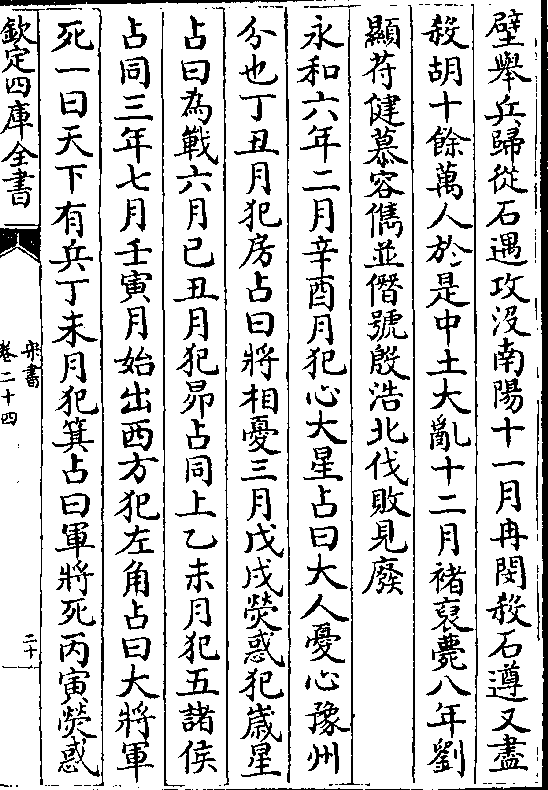 壁舉兵歸從石遇攻没南陽十一月冉閔殺石遵又盡
殺胡十餘萬人於是中土大亂十二月禇裒薨八年劉
顯苻健慕容儁並僭號殷浩北伐敗見廢
永和六年二月辛酉月犯心大星占曰大人憂心豫州
分也丁丑月犯房占曰將相憂三月戊戌熒惑犯嵗星
占曰為戰六月己丑月犯昴占同上乙未月犯五諸侯
占同三年七月壬寅月始出西方犯左角占曰大將軍
死一曰天下有兵丁未月犯箕占曰軍將死丙寅熒惑
欽定四庫全書
宋書
卷二十四
二十